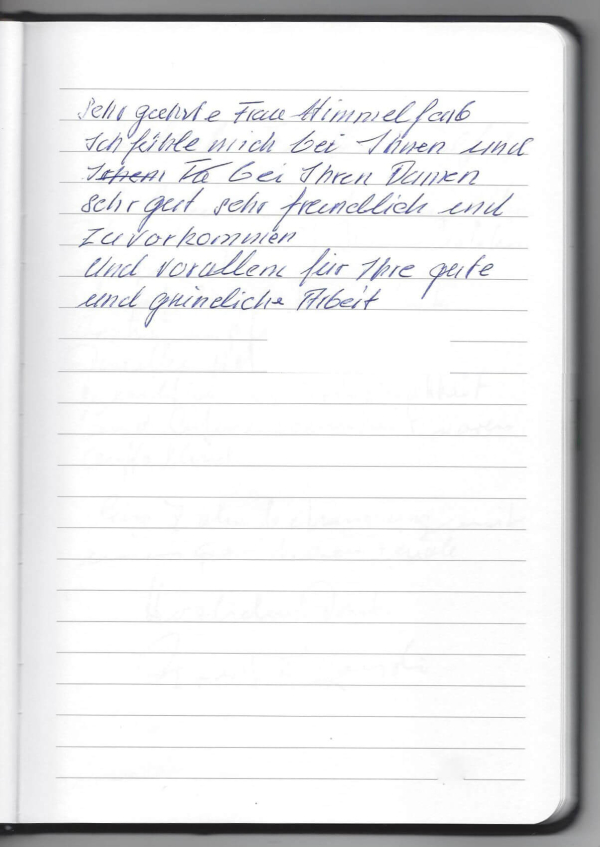 Sehr geehrte Frau Himmelfarb
Ich fühle mich bei Ihnen und
bei Ihren Damen
sehr gut sehr freundlich und
zuvorkommen
Und vorallem für Ihre gute
und gründliche Arbeit